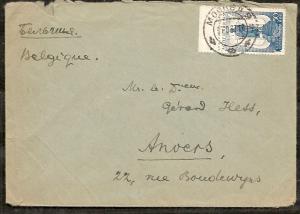 Бельгия.
Belgique.
МОСКВА
Mr. & Drem.
Gérard Hess,
Anvers,
22, rue Boudewyns